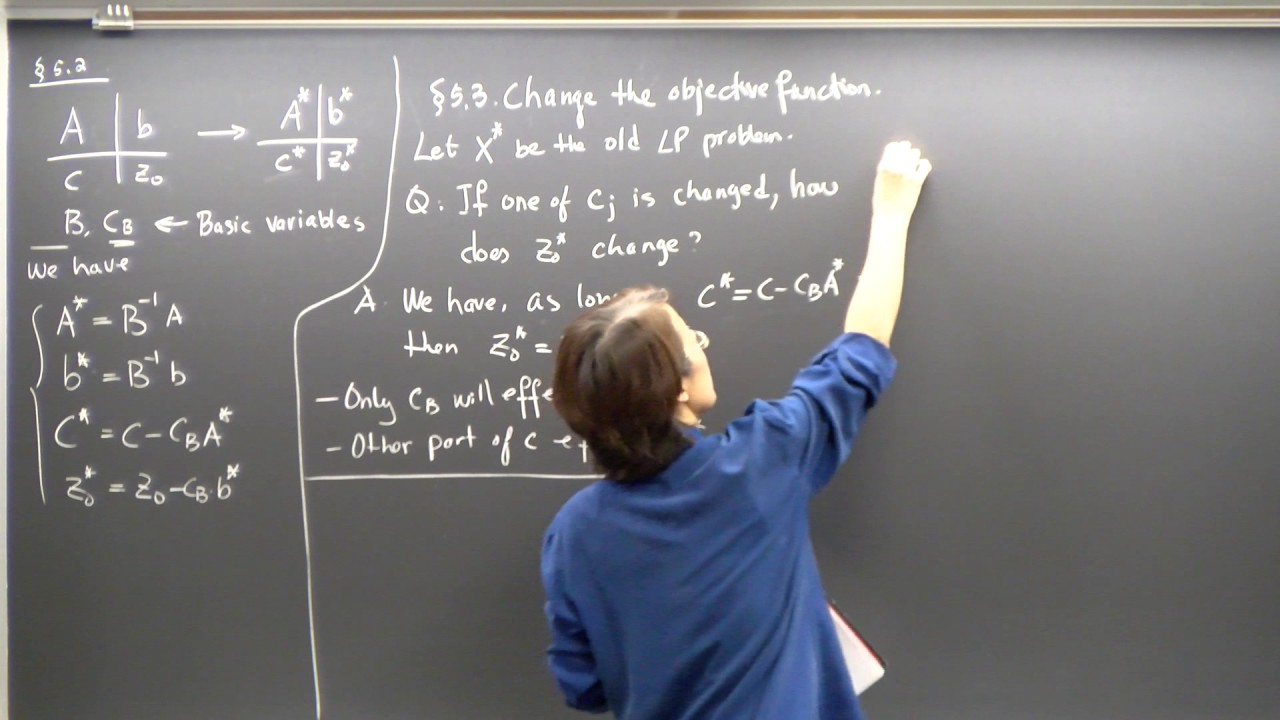 §5.2
A | b → A* | b*
c | z₀ c* | z₀*
B, C_B ← Basic variables
We have
A* = B⁻¹A
b* = B⁻¹b
C* = C - C_B A*
z₀* = z₀ - C_B·b*
§5.3. Change the objective function.
Let X* be the old LP problem.
Q: If one of Cj is changed, how
does z₀* change?
A. We have, as C* = C - C_B A*
then z₀* =
- Only C_B will
- Other part of C